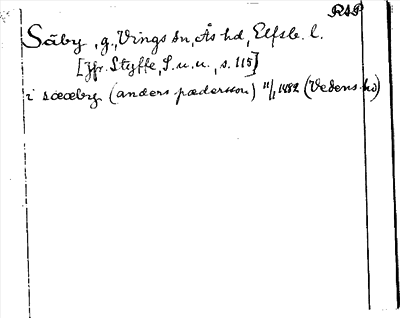 RAP
Säby, g., Vings sn, Ås hd, Elfsb. l.
[Jfr. Styffe, S.u.u., s. 115]
i sææby (anders pædersson) 11/1 1482 (Vedens hd)